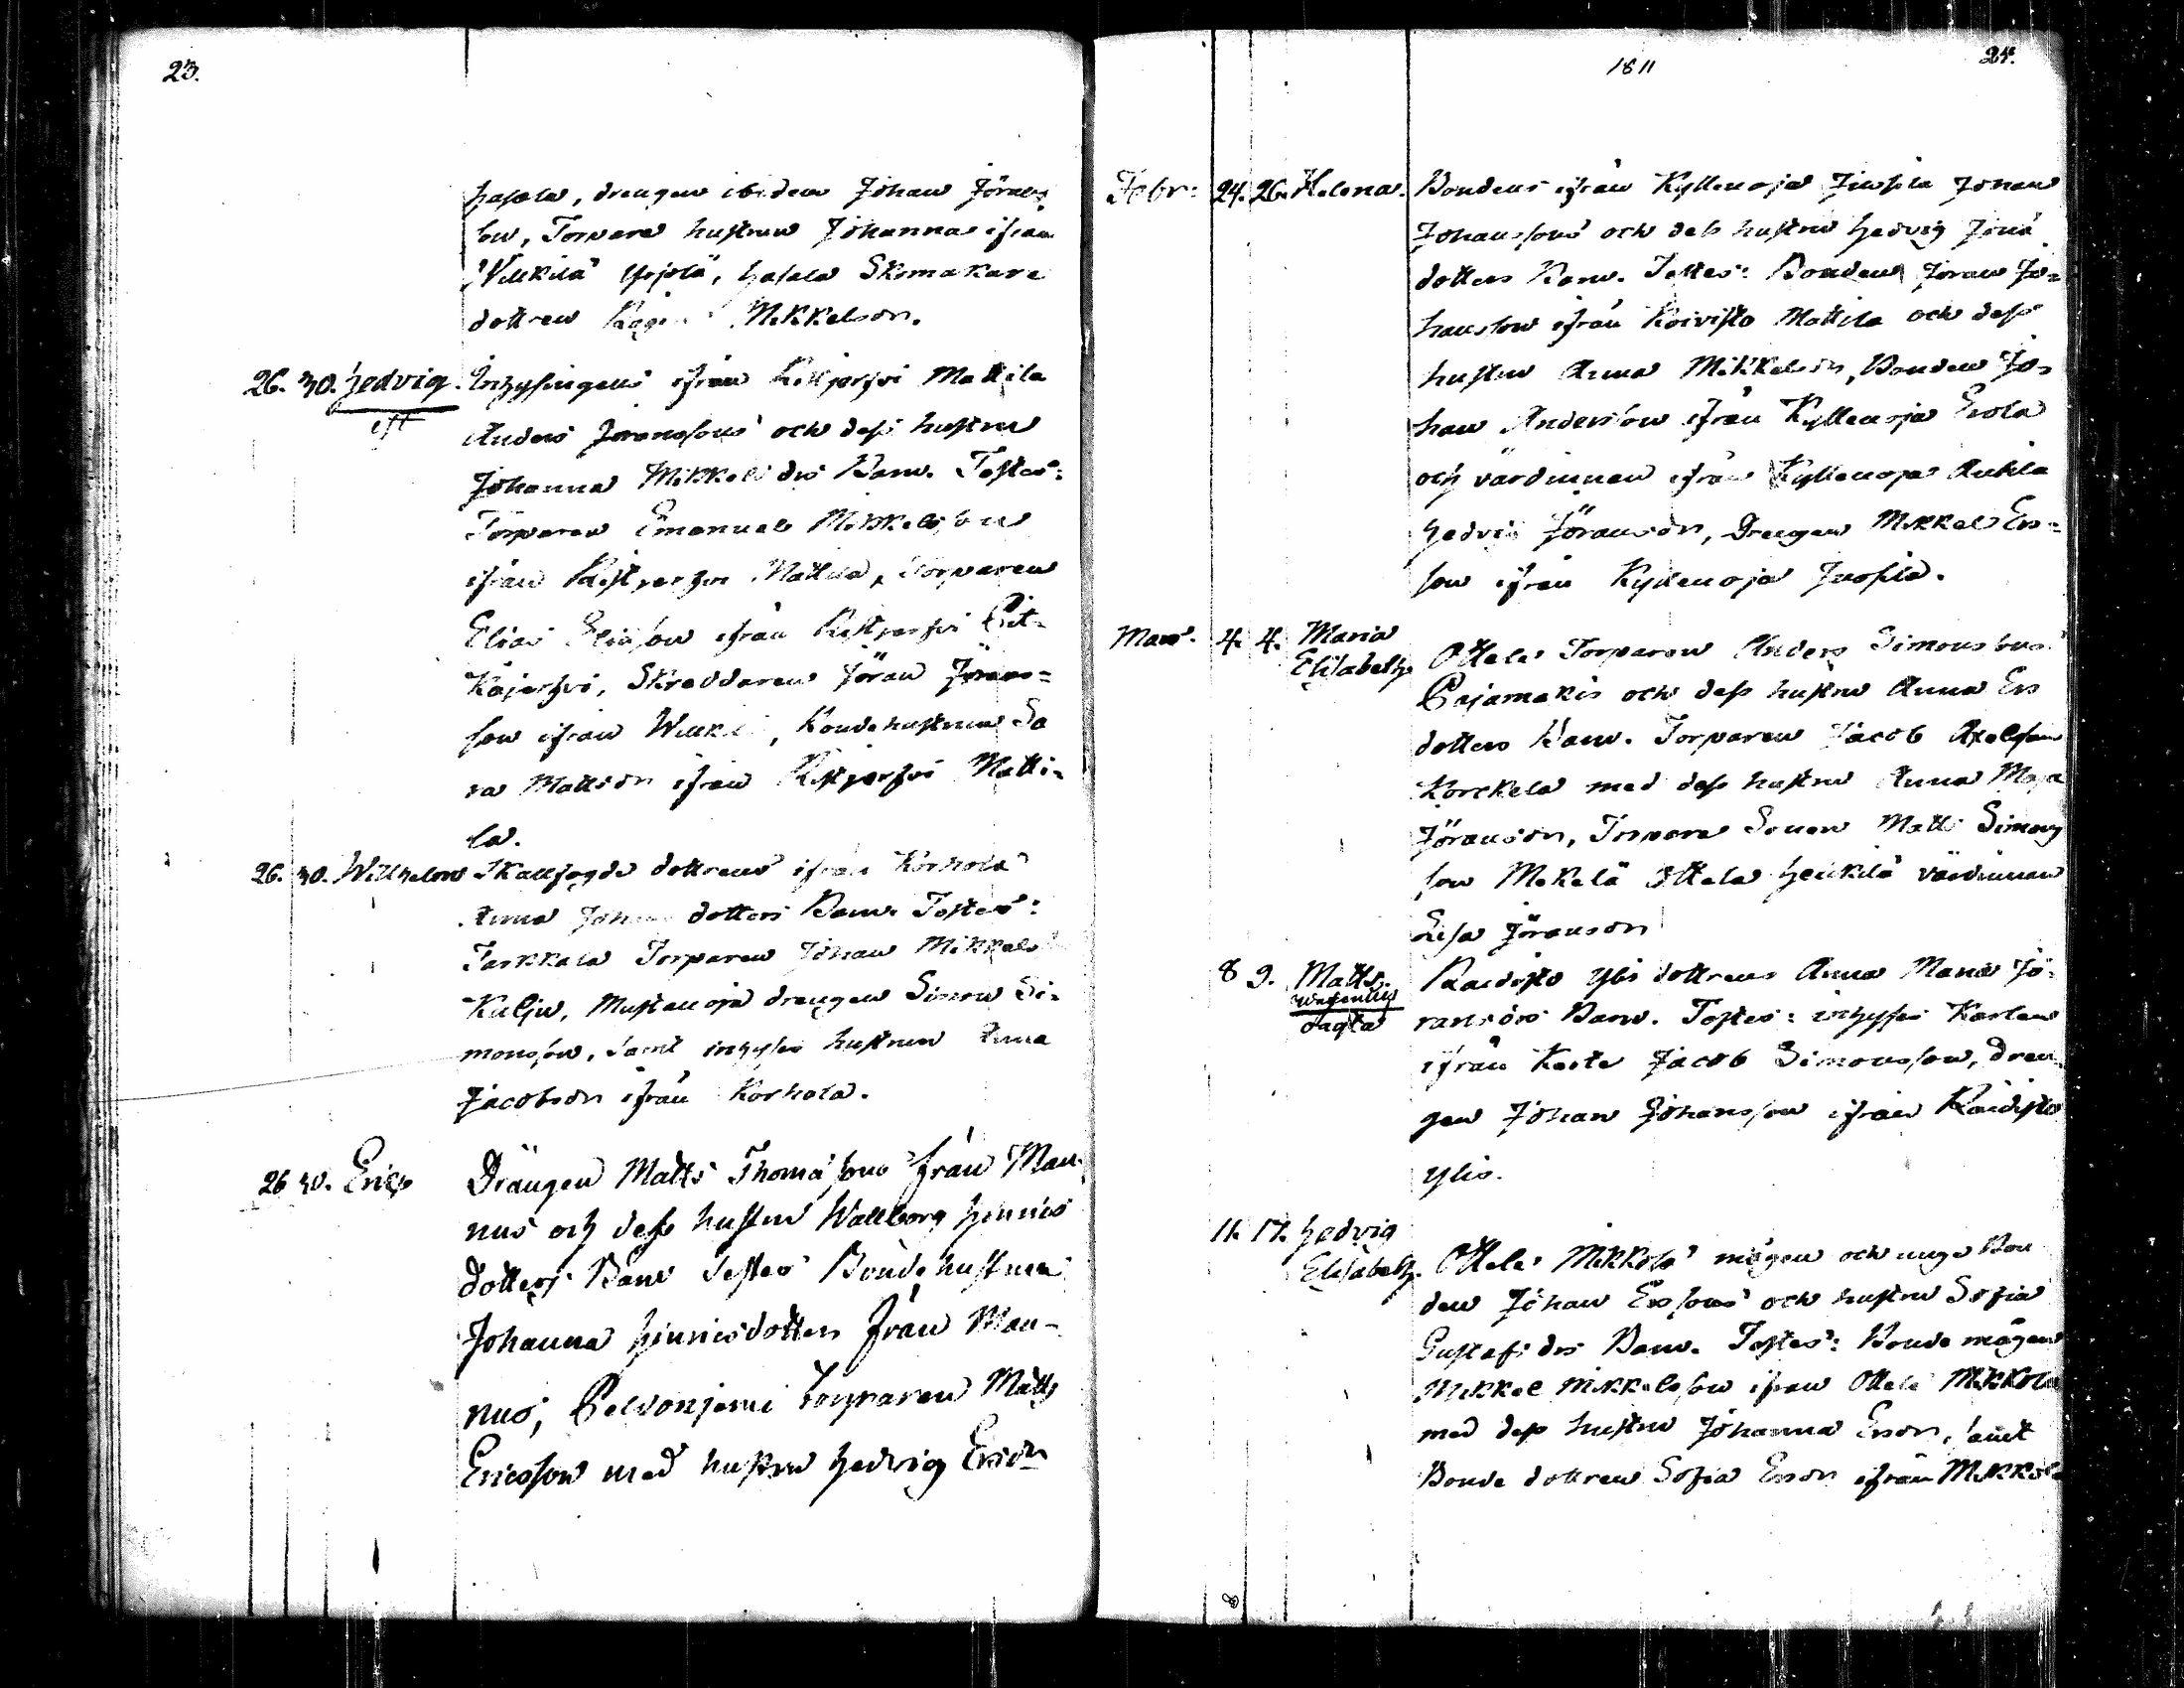 23.
hasala, drengen ibidem Johan Jörans
son, Torpare hustrun Johanna ifrån
Wilkilä, Hasala Skomakare
dottren Mikkelsdr.
26. 30. Hedvig. Inhysingens ifrån Kistjerfvi Mattila
Anders Joransons och dess hustru
Johanna Mikkels drs Barn. Testes:
Torparen Emanuel Mikkelsson
ifrån Kistjerfvi Mattila, Torparen
Elias Eliasson ifrån Kistjerfvi Pit-
käjerfvi, Skreddaren Jöran Jörans=
son ifrån, Bondehustrun Sa
ra Mattsdr ifrån Kistjerfvi Matti=
la.
26. 30. Wilhelm Skallfogde dottrens ifrån Korhola
Anna Johans dotters Barn. Testes:
Torparen Johan Mikkels
Kulju, Mustanoja drengen Simon Si=
monsson, samt inhyses hustrun Anna
Jacobsdr ifrån Korhola.
26 30. Eric Drängen Matts Thomasons från Man
nus och dess hustru Wallborg Hinrics
dotters Barn Testes Bondehustrun
Johanna Hinricsdotter från Man-
nus, Peldonjemi Torparen Matts
Ericsson med hustru Hedvig Ersdr
1811
24.
Febr: 24. 26. Helena. Bondens ifrån Kyllenoja Jussila Johan
Johanssons och dess hustru Hedvig
dotters Barn. Testes: Bonden Joran Jo=
hansson ifrån Koivisto Mattila och dess
hustru Anna Mikkelsdr, Bonden Jo=
han Andersson ifrån Kyllenoja Erola
och värdinnan ifrån Kyllenoja Anttila
Hedvig Jöransdr, Drengen Mikkel Ers=
son ifrån Kyllenoja Jussila.
Mars. 4. 4. Maria
Elisabeth Ottela Torparen Anders Simonssons
Pajamäkis och dess hustru Anna Ers
dotters Barn. Torparen Jacob Axelsson
Korckela med dess hustru Anna Maja
Jöransdr, Torpare Sonen Matts Simons
son Mekelä Ottela Heikilä värdinnan
Lisa Jöransdr
8 9. Matts. Raidisto Ylis dottrens Anna Maria Jö=
ransdrs Barn. Testes: inhyses Karlen
ifrån Jacob Simonsson, Dren
gen Johan Johansson ifrån Raidisto
Ylis.
11. 17. Hedvig
Elisabeth. Ottela Mikkola mågen och unge Bon
den Johan Erssons och hustru Sofia
Gustafs drs Barn. Testes: Bonde mågen
Mikkel Mikkelsson ifrån Ottela Mikkola
med dess hustru Johanna Ersdr, samt
Bonde dottren Sofia Ersdr ifrån Mikkola